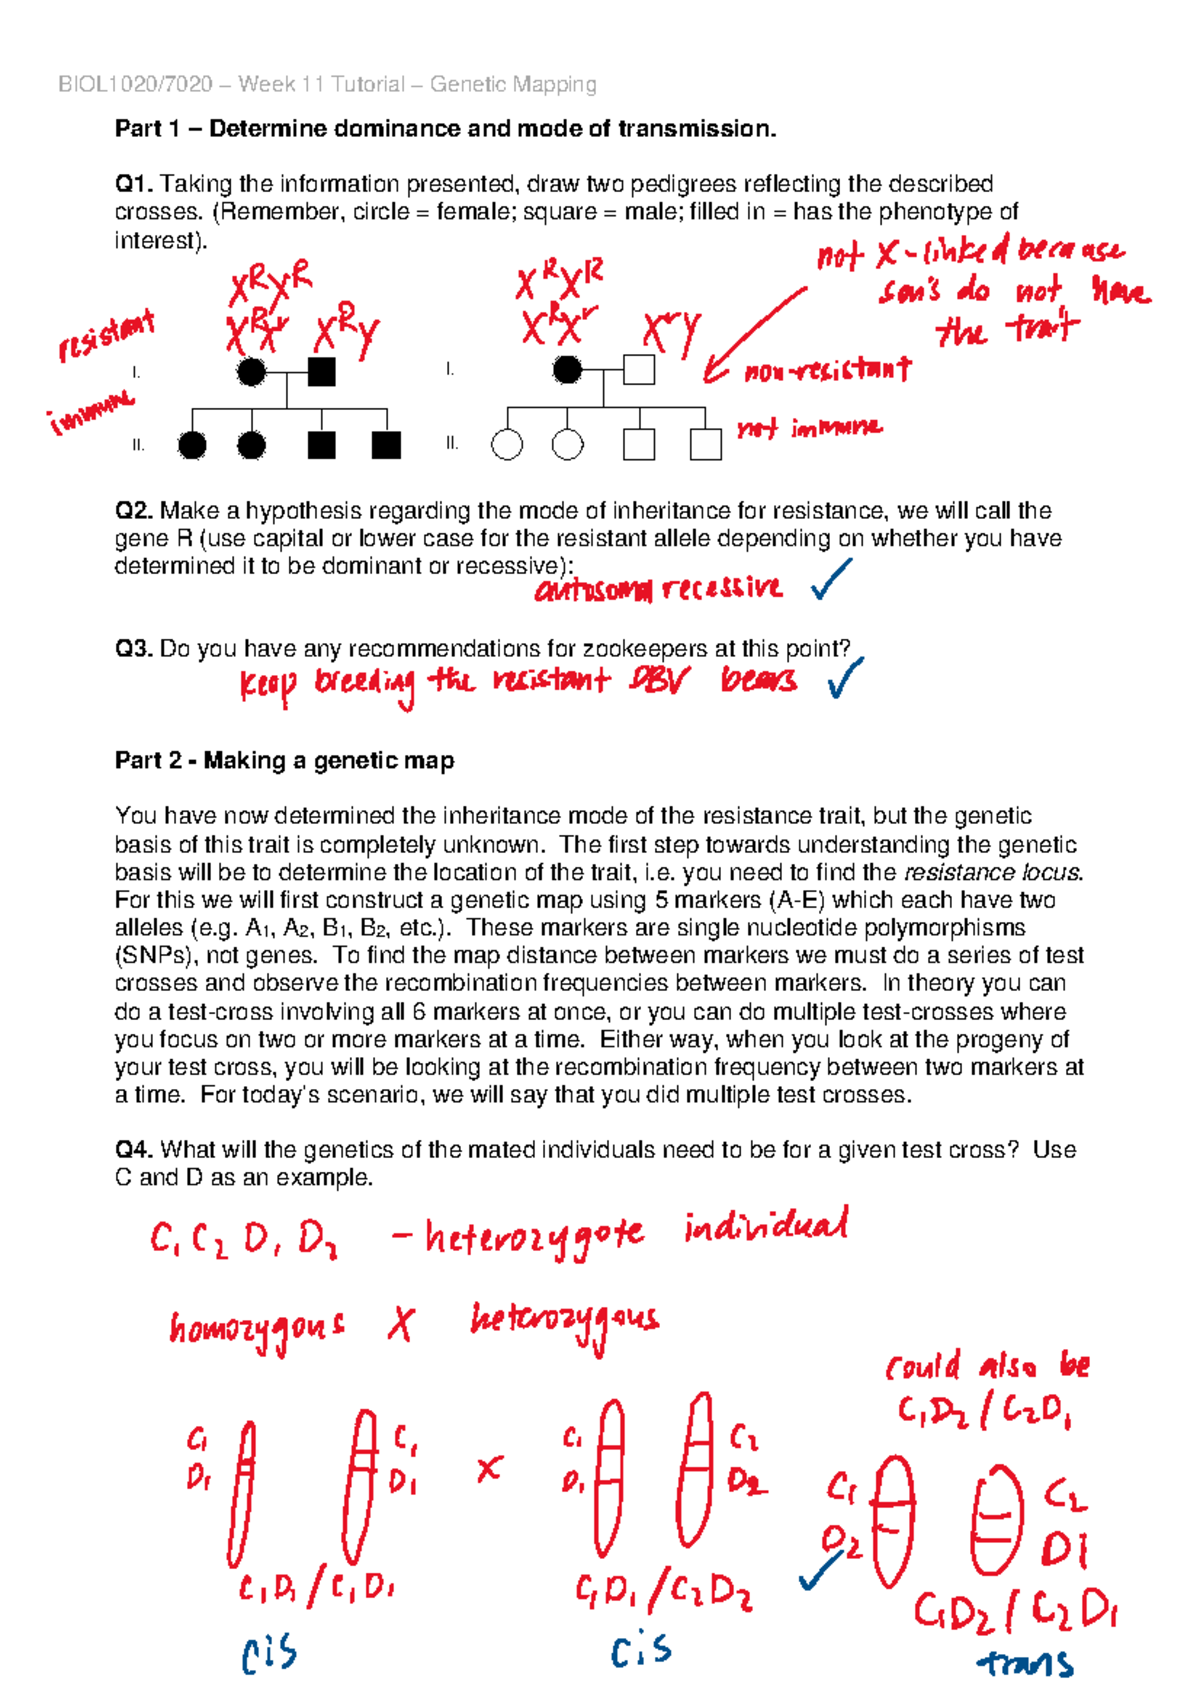 BIOL1020/7020 – Week 11 Tutorial – Genetic Mapping
Part 1 – Determine dominance and mode of transmission.
Q1. Taking the information presented, draw two pedigrees reflecting the described
crosses. (Remember, circle = female; square = male; filled in = has the phenotype of
interest).
not X-linked because
son's do not have
the trait
XᴿXᴿ
XᴿXʳ XᴿY
XᴿXᴿ
XᴿXʳ XʳY
resistant
immune
I.
II.
I.
II.
non-resistant
not immune
Q2. Make a hypothesis regarding the mode of inheritance for resistance, we will call the
gene R (use capital or lower case for the resistant allele depending on whether you have
determined it to be dominant or recessive):
autosomal recessive ✓
Q3. Do you have any recommendations for zookeepers at this point?
keep breeding the resistant DBV bears ✓
Part 2 - Making a genetic map
You have now determined the inheritance mode of the resistance trait, but the genetic
basis of this trait is completely unknown. The first step towards understanding the genetic
basis will be to determine the location of the trait, i.e. you need to find the resistance locus.
For this we will first construct a genetic map using 5 markers (A-E) which each have two
alleles (e.g. A₁, A₂, B₁, B₂, etc.). These markers are single nucleotide polymorphisms
(SNPs), not genes. To find the map distance between markers we must do a series of test
crosses and observe the recombination frequencies between markers. In theory you can
do a test-cross involving all 6 markers at once, or you can do multiple test-crosses where
you focus on two or more markers at a time. Either way, when you look at the progeny of
your test cross, you will be looking at the recombination frequency between two markers at
a time. For today's scenario, we will say that you did multiple test crosses.
Q4. What will the genetics of the mated individuals need to be for a given test cross? Use
C and D as an example.
C₁ C₂ D₁ D₂ – heterozygote individual
homozygous X heterozygous
could also be
C₁D₂ / C₂D₁
C₁ C₁ x C₁ C₂
D₁ D₁ D₁ D₂
C₁ C₂
D₂ D1
C₁D₁ / C₁D₁
C₁D₁ / C₂D₂ ✓
C₁D₂ / C₂D₁
cis
cis
trans